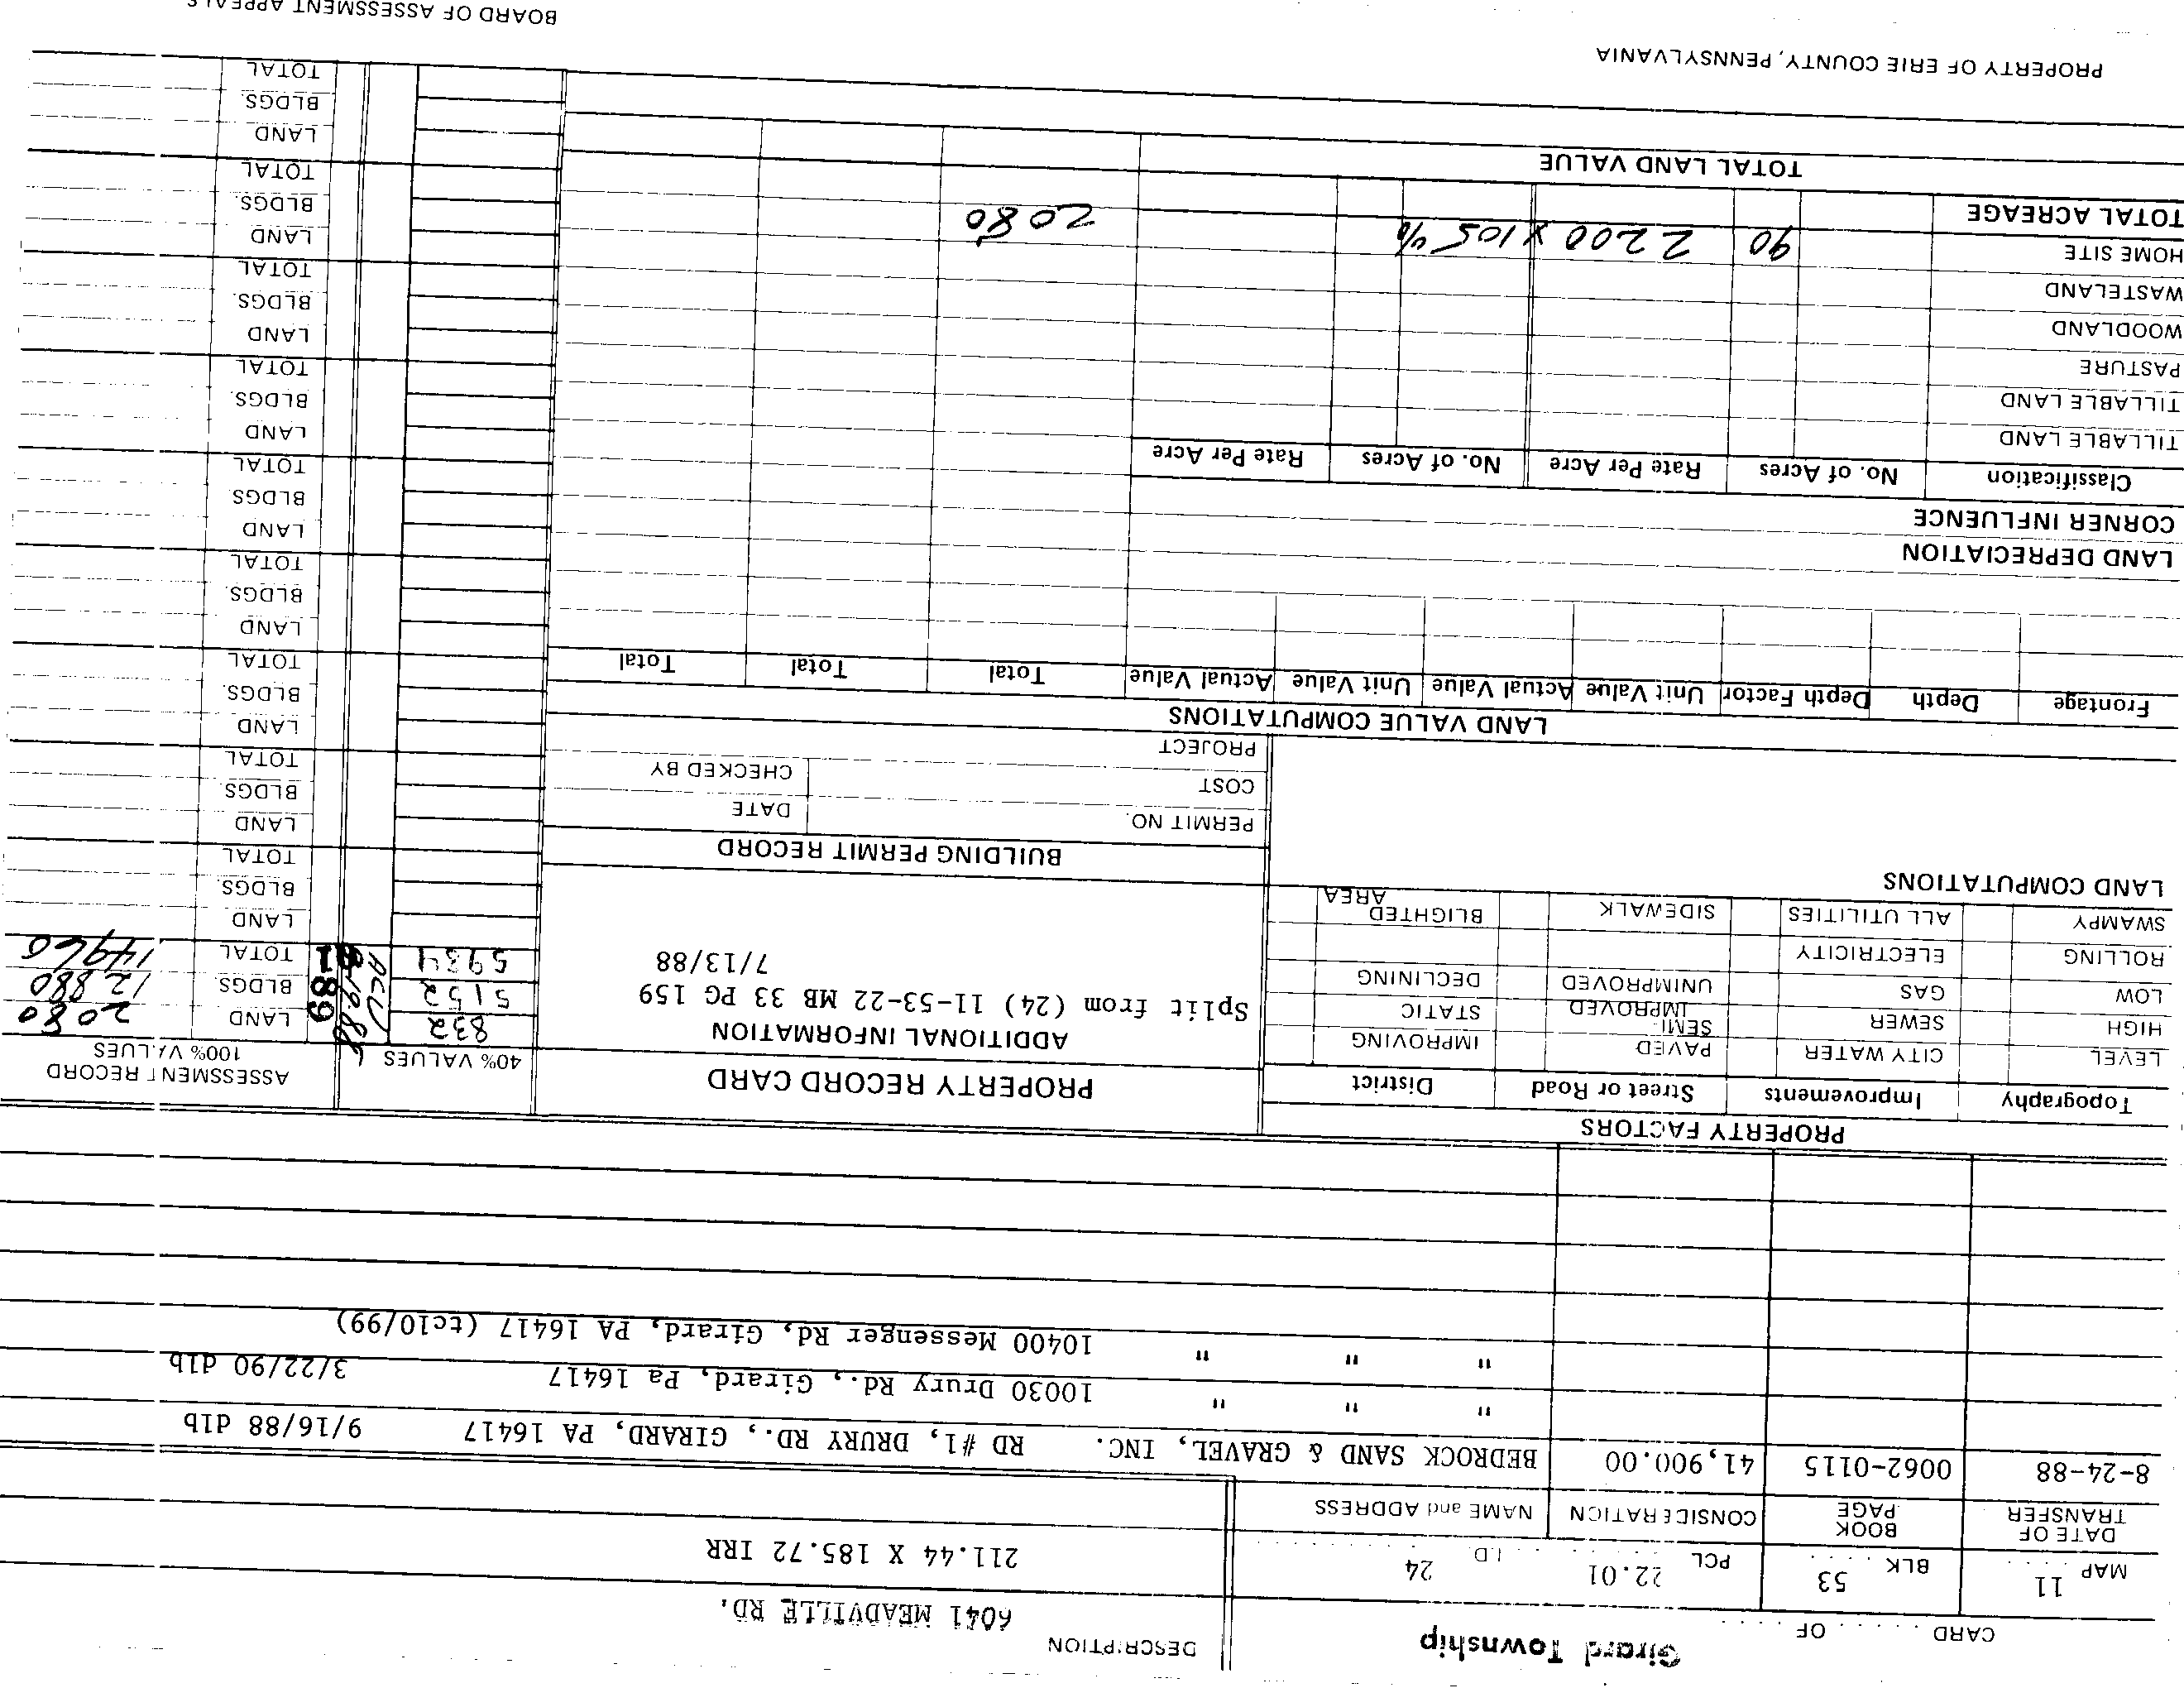 CARD . . . . . . OF . . . . . .
Girard Township
DESCRIPTION
6041 MEADVILLE RD.
MAP 11 BLK 53 PCL 22.01 I.D. 24
211.44 X 185.72 IRR
DATE OF TRANSFER BOOK PAGE CONSIDERATION NAME and ADDRESS
8-24-88 0062-0115 41,900.00 BEDROCK SAND & GRAVEL, INC. RD #1, DRURY RD., GIRARD, PA 16417 9/16/88 dlb
" " " 10030 Drury Rd., Girard, Pa 16417 3/22/90 dlb
" " " 10400 Messenger Rd, Girard, PA 16417 (tc10/99)
PROPERTY FACTORS
Topography Improvements Street or Road District
LEVEL CITY WATER PAVED IMPROVING
HIGH SEWER SEMI IMPROVED STATIC
LOW GAS UNIMPROVED DECLINING
ROLLING ELECTRICITY
SWAMPY ALL UTILITIES SIDEWALK BLIGHTED AREA
LAND COMPUTATIONS
PROPERTY RECORD CARD
ADDITIONAL INFORMATION
Split from (24) 11-53-22 MB 33 PG 159
7/13/88
BUILDING PERMIT RECORD
PERMIT NO. DATE
COST CHECKED BY
PROJECT
40% VALUES
832
5152
5984
ASSESSMENT RECORD
100% VALUES
189
LAND 2080
BLDGS. 12880
TOTAL 14960
LAND
BLDGS.
TOTAL
LAND
BLDGS.
TOTAL
LAND
BLDGS.
TOTAL
LAND
BLDGS.
TOTAL
LAND
BLDGS.
TOTAL
LAND
BLDGS.
TOTAL
LAND
BLDGS.
TOTAL
LAND
BLDGS.
TOTAL
LAND
BLDGS.
TOTAL
LAND VALUE COMPUTATIONS
Frontage Depth Depth Factor Unit Value Actual Value Unit Value Actual Value Total Total Total
LAND DEPRECIATION
CORNER INFLUENCE
Classification No. of Acres Rate Per Acre No. of Acres Rate Per Acre
TILLABLE LAND
TILLABLE LAND
PASTURE
WOODLAND
WASTELAND
HOME SITE 90 2200 X 105% 2080
TOTAL ACREAGE
TOTAL LAND VALUE
PROPERTY OF ERIE COUNTY, PENNSYLVANIA
BOARD OF ASSESSMENT APPEALS